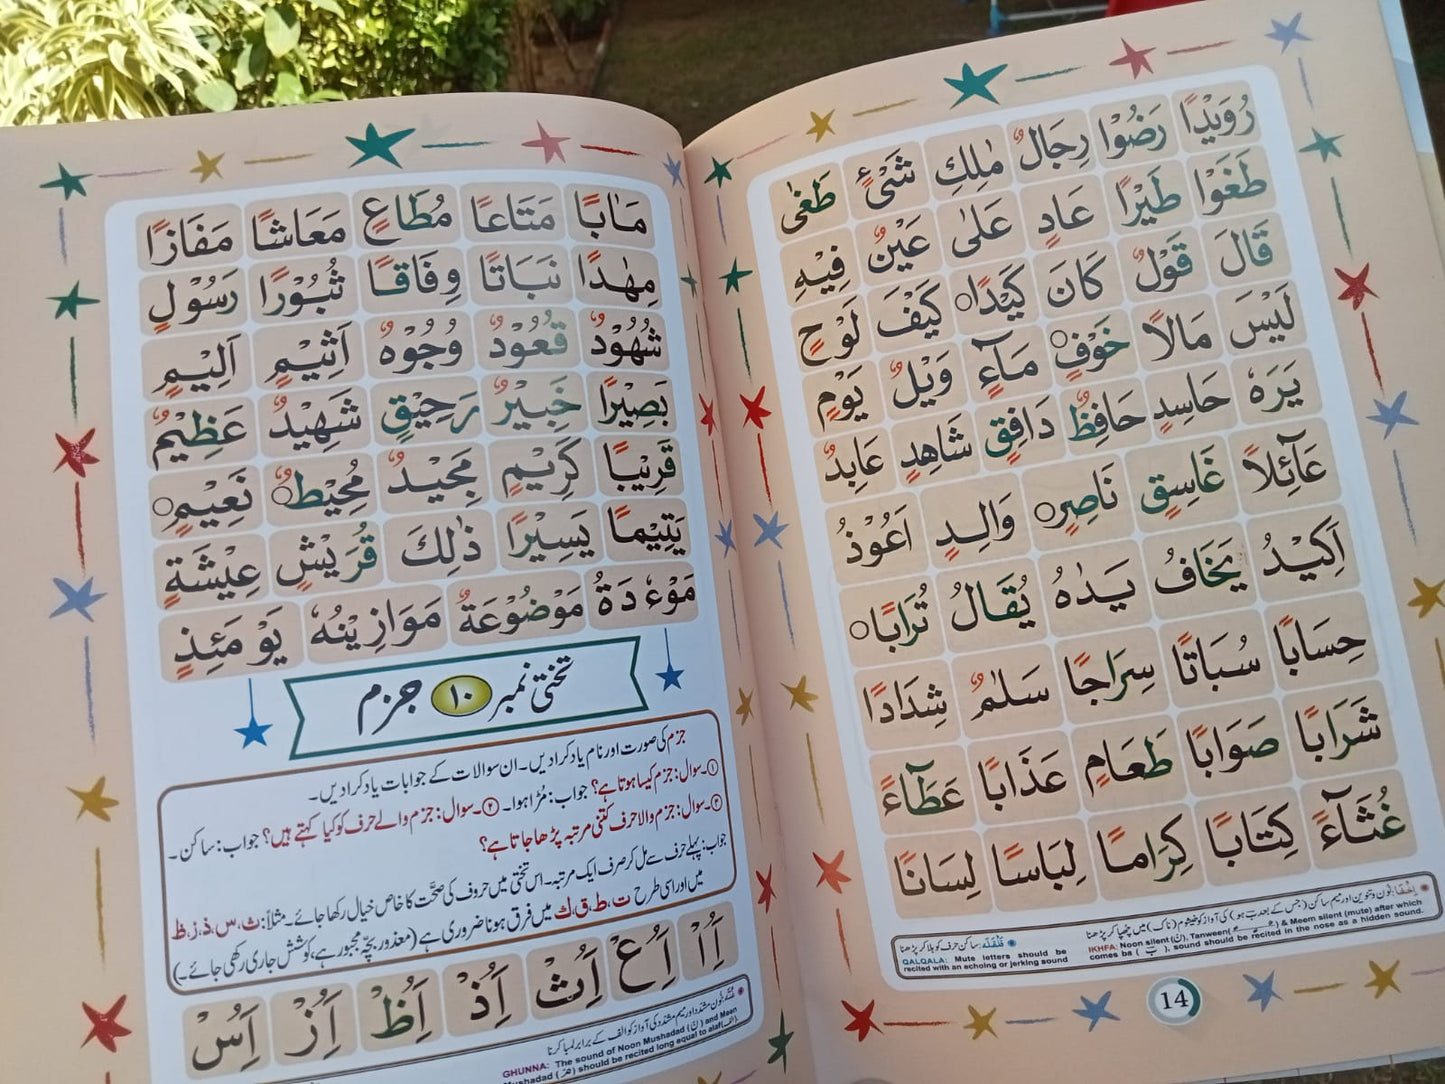 رُوَيْدًا رَضُوْا رِجَالٌ مٰلِكِ شَیْءٍ طَغٰی
طَغَوْا طَيْرًا عَادٍ عَلٰی عَيْنٌ فِيْهِ
قَالَ قَوْلٌ كَانَ كَيْدًا كَيْفَ لَوْحٍ
لَيْسَ مَالًا خَوْفٍ مَآءٍ وَيْلٌ يَوْمٍ
يَرَهٗ حَاسِدٍ حَافِظٌ دَافِقٍ شَاهِدٍ عَابِدٌ
عَآئِلًا غَاسِقٍ نَاصِرٍ وَالِدٍ اَعُوْذُ
اَكِيْدُ يَخَافُ يَدٰهُ يُقَالُ تُرَابًا
حِسَابًا سُبَاتًا سِرَاجًا سَلٰمٌ شِدَادًا
شَرَابًا صَوَابًا طَعَامٍ عَذَابًا عَطَآءً
غُثَآءً كِتَابًا كِرَامًا لِبَاسًا لِسَانًا
اِخْفَا: نون و تنوین اور میم ساکن (جس کے بعد ب ہو) کی آواز کو خیشوم (ناک) میں چھپا کر پڑھنا
IKHFA: Noon silent (نْ), Tanween & Meem silent (mute) after which
comes ba (بّ), sound should be recited in the nose as a hidden sound.
قَلْقَلَه: ساکن حرف کو ہلا کر پڑھنا
QALQALA: Mute letters should be
recited with an echoing or jerking sound
14
مَاٰبًا مَتَاعًا مُطَاعٍ مَعَاشًا مَفَازًا
مِهٰدًا نَبَاتًا وِفَاقًا ثُبُوْرًا رَسُوْلٍ
شُهُوْدٌ قُعُوْدٌ وُجُوْهٌ اَثِيْمٍ اَلِيْمٍ
بَصِيْرًا خَبِيْرٌ رَحِيْقٍ شَهِيْدٌ عَظِيْمٌ
قَرِيْبًا كَرِيْمٍ مَجِيْدٌ مُحِيْطٌ نَعِيْمٍ
يَتِيْمًا يَسِيْرًا ذٰلِكَ قُرَيْشٍ عِيْشَةٍ
مَوْءٗدَةُ مَوْضُوْعَةٌ مَوَازِيْنُهٗ يَوْمَئِذٍ
تختی نمبر ۱۰ جزم
جزم کی صورت اور نام یاد کرا دیں۔ ان سوالات کے جوابات یاد کرا دیں۔
۱۔ سوال: جزم کیسا ہوتا ہے؟ جواب: مُڑا ہوا۔ ۲۔ سوال: جزم والے حرف کو کیا کہتے ہیں؟ جواب: ساکن۔
۳۔ سوال: جزم والا حرف کتنی مرتبہ پڑھا جاتا ہے؟
جواب: پہلے حرف سے مل کر صرف ایک مرتبہ۔ اس تختی میں حروف کی صحّت کا خاص خیال رکھا جائے۔ مثلاً: ث، س، ذ، ز، ظ
میں اور اسی طرح ت، ط، ق، ك میں فرق ہونا ضروری ہے (معذور بچّہ مجبور ہے، کوشش جاری رکھی جائے۔)
اَاْ اَعْ اَثْ اَذْ اَظْ اَزْ اَسْ
غُنَّه: نون مشدّد اور میم مشدّد کی آواز کو الف کے برابر لمبا کرنا
GHUNNA: The sound of Noon Mushadad (نّ) and Meem
Mushadad (مّ) should be recited long equal to alaf (الف).